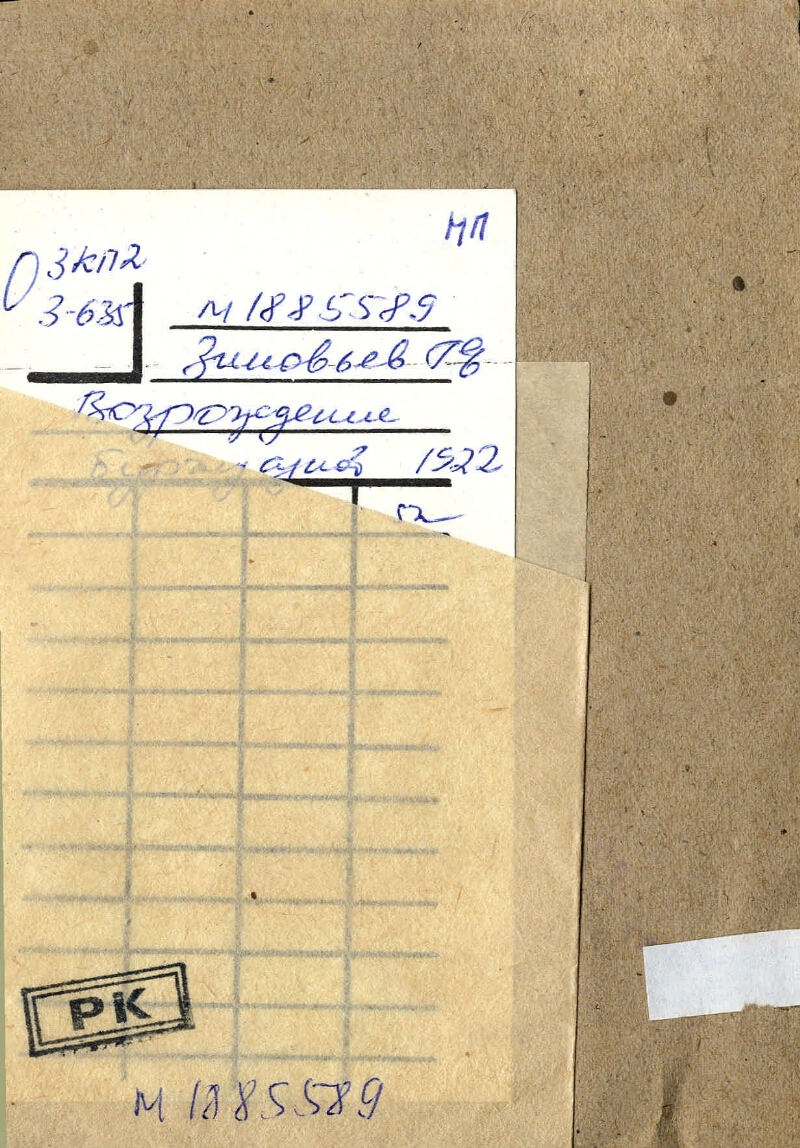 МП
ЗКП2
3-635
М1885589
Зиновьев ГЕ
Возрождение
1922
РК
М1885589